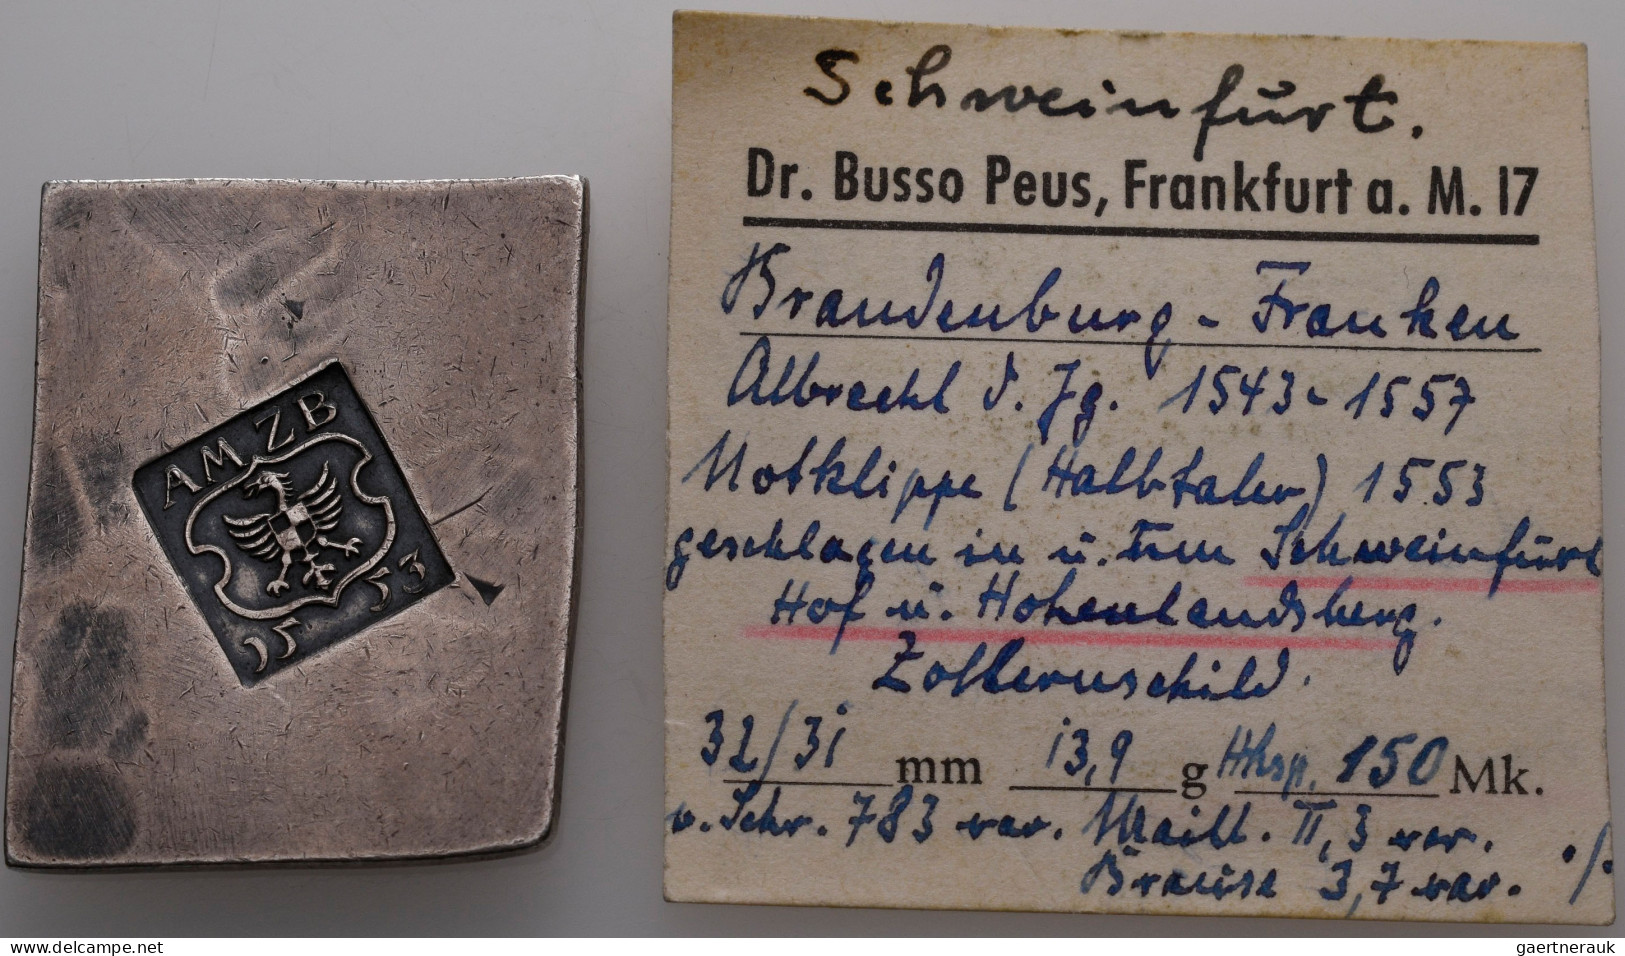 AMZB
1553
Schweinfurt.
Dr. Busso Peus, Frankfurt a. M. 17
Brandenburg - Franken
Albrecht d. Jg. 1543 - 1557
Notklippe (Halbtaler) 1553
geschlagen in u. um Schweinfurt
Hof u. Hohenlandsberg.
Zollernschild.
32/31 mm 13,9 g Hhsp. 150 Mk.
v. Schr. 783 var. Maill. II, 3 var.
Brause 3,7 var. ./.
www.delcampe.net
gaertnerauk